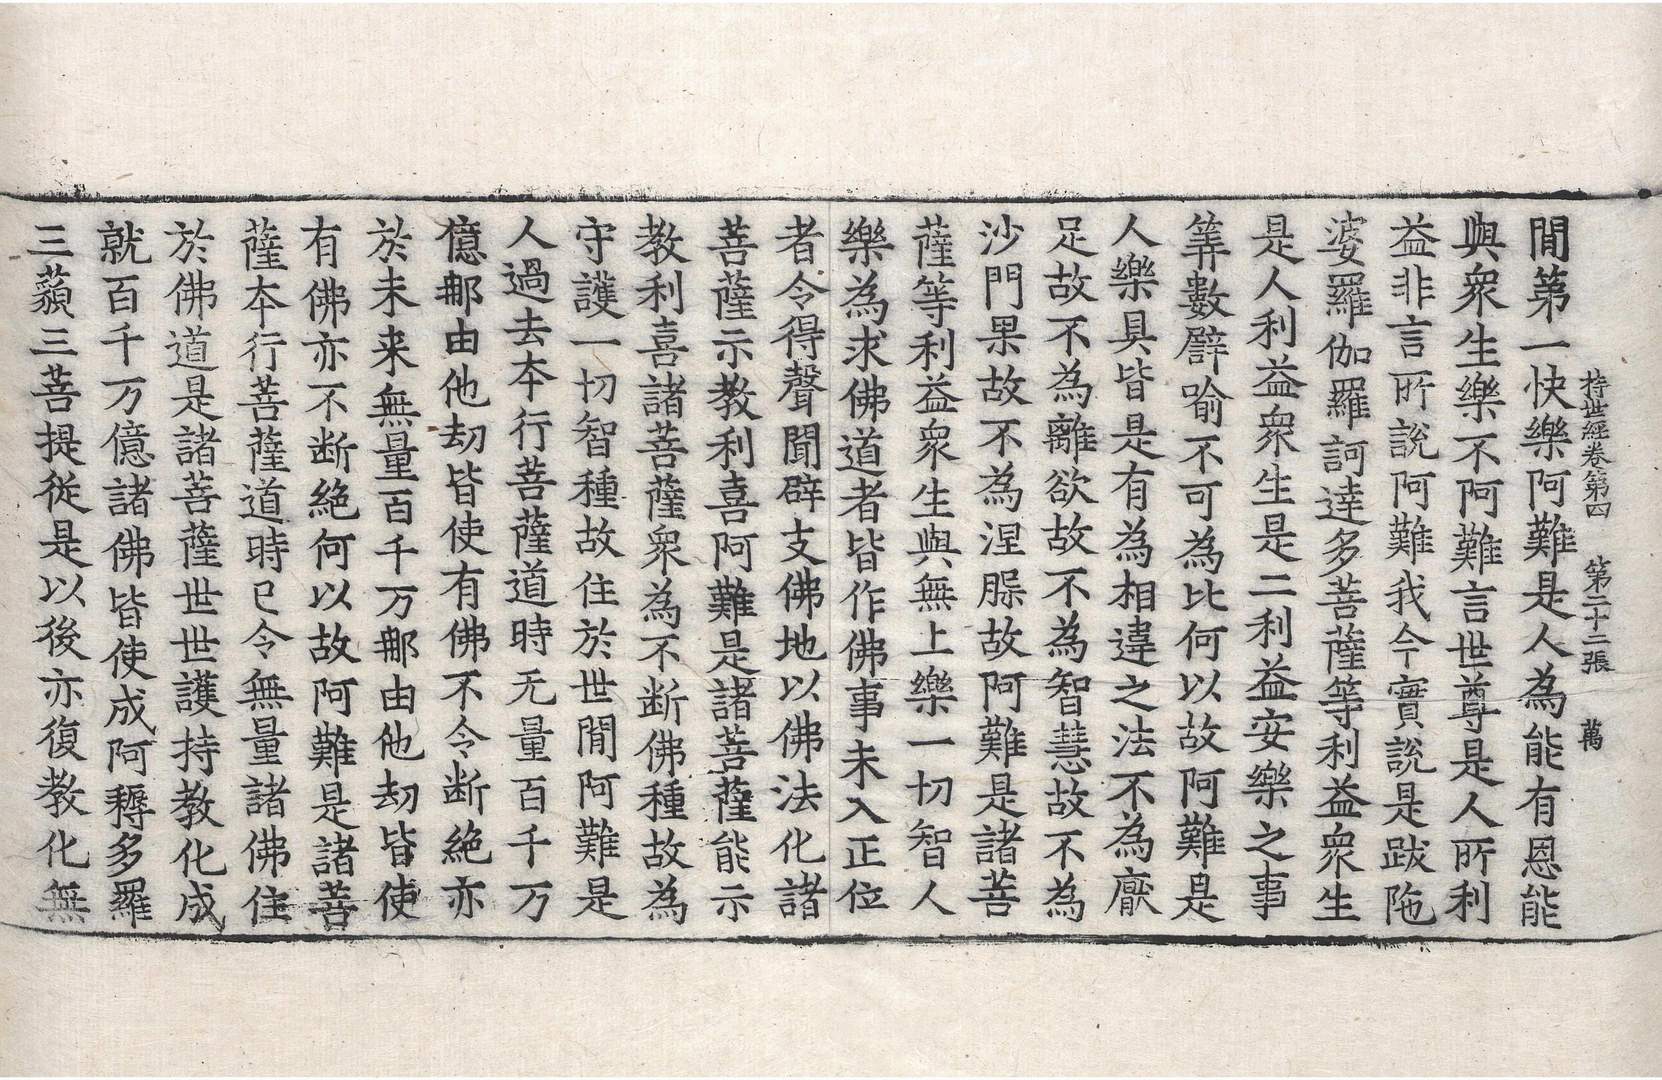 持世經卷第四　第二十二張　萬
閒第一快樂阿難是人為能有恩能
與衆生樂不阿難言世尊是人所利
益非言所說阿難我今實說是跋陁
婆羅伽羅訶達多菩薩等利益衆生
是人利益衆生是二利益安樂之事
筭數譬喻不可為比何以故阿難是
人樂具皆是有為相違之法不為猒
足故不為離欲故不為智慧故不為
沙門果故不為涅膎故阿難是諸菩
薩等利益衆生與無上樂一切智人
樂為求佛道者皆作佛事未入正位
者令得聲聞辟支佛地以佛法化諸
菩薩示教利喜阿難是諸菩薩能示
教利喜諸菩薩衆為不断佛種故為
守護一切智種故住於世閒阿難是
人過去本行菩薩道時无量百千万
億那由他劫皆使有佛不令断絶亦
於未来無量百千万那由他劫皆使
有佛亦不断絶何以故阿難是諸菩
薩本行菩薩道時已令無量諸佛住
於佛道是諸菩薩世世護持教化成
就百千万億諸佛皆使成阿耨多羅
三藐三菩提從是以後亦復教化無